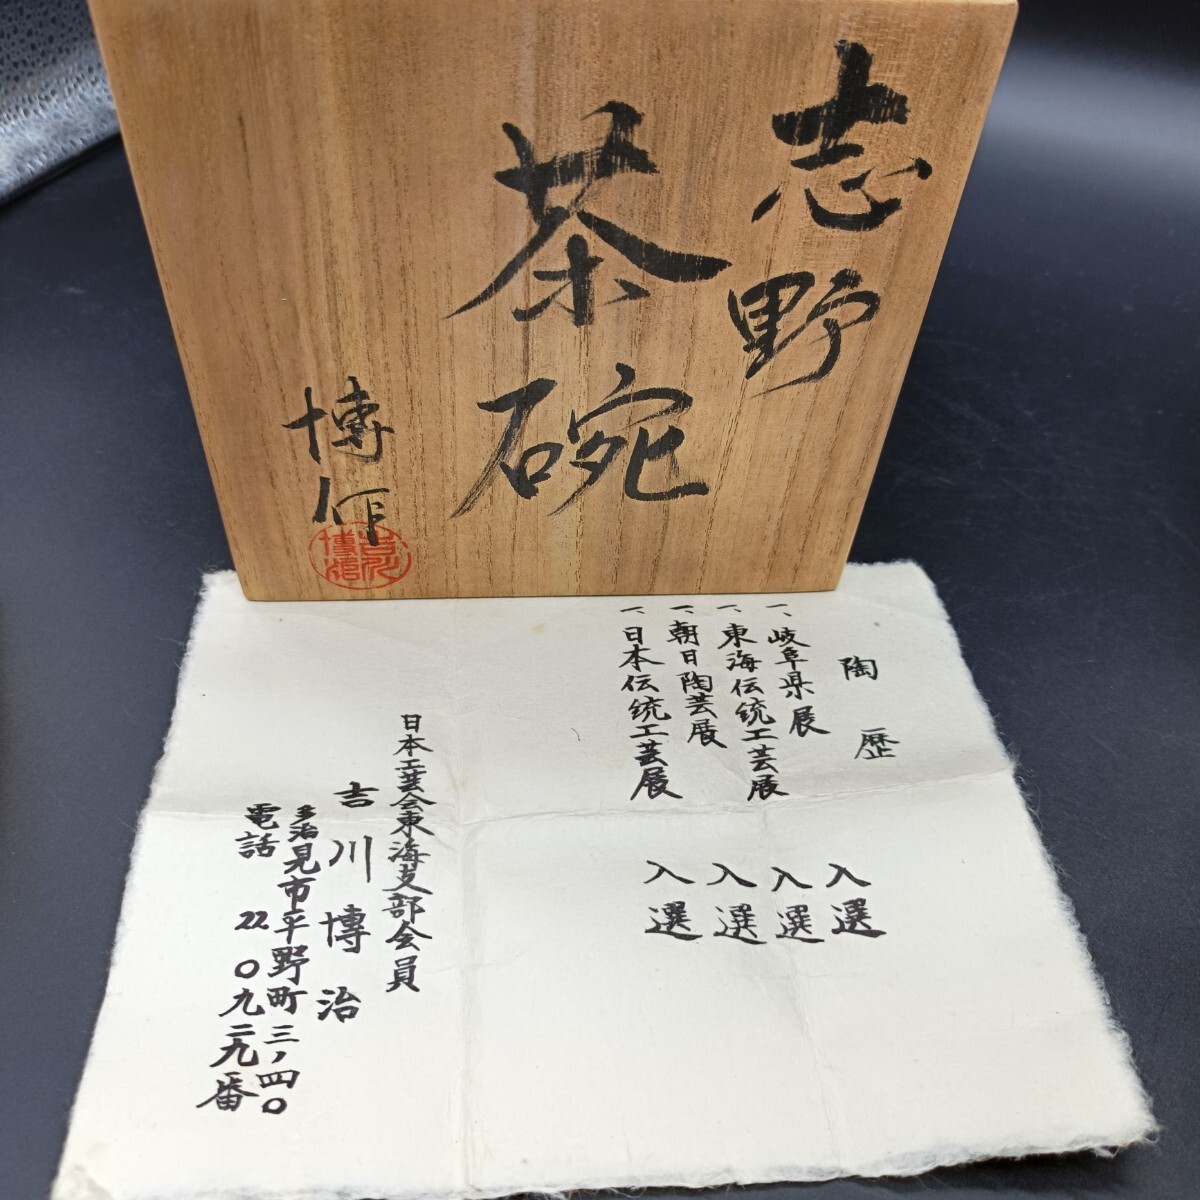 志野
茶碗
博作
吉川博治
陶歴
一、岐阜県展 入選
一、東海伝統工芸展 入選
一、朝日陶芸展 入選
一、日本伝統工芸展 入選
日本工芸会東海支部会員
吉川博治
多治見市平野町三ノ四〇
電話 22 〇九二九番